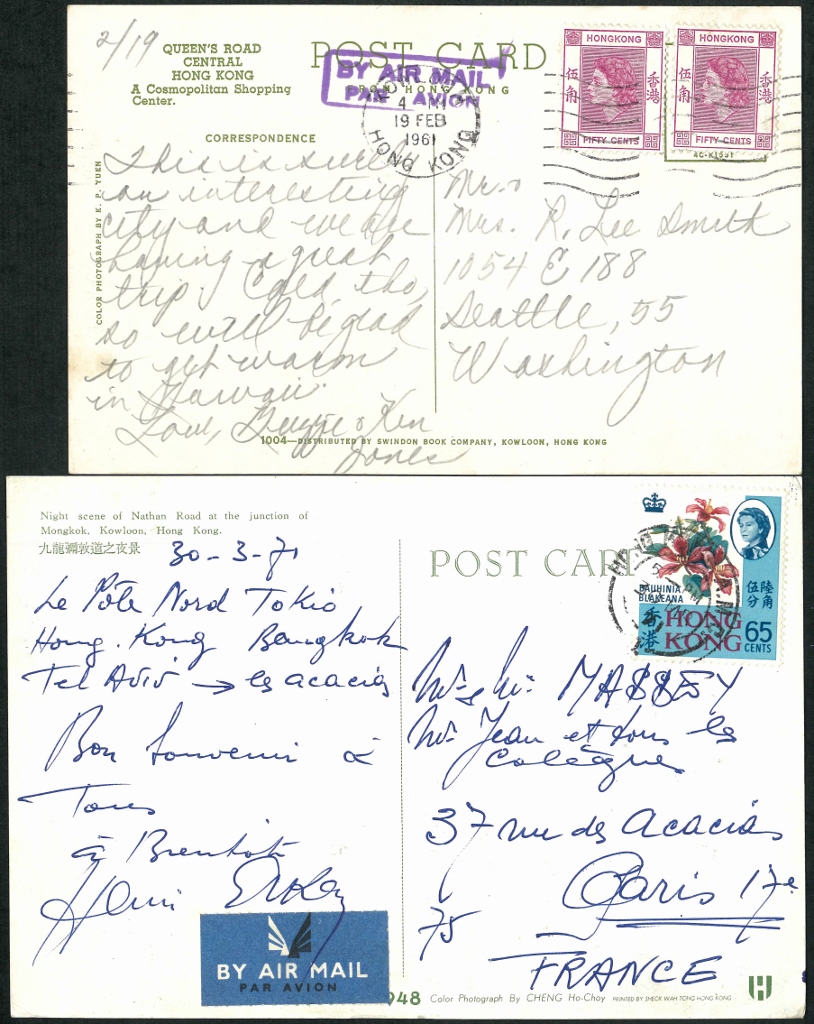 2/19
QUEEN'S ROAD
CENTRAL
HONG KONG
A Cosmopolitan Shopping
Center.
POST CARD
FROM HONG KONG
BY AIR MAIL
PAR AVION
4
19 FEB
1961
HONG KONG
HONGKONG
伍角
香港
FIFTY CENTS
HONGKONG
伍角
香港
FIFTY CENTS
CORRESPONDENCE
COLOR PHOTOGRAPH BY K. P. YUEN
This is surely
an interesting
city and we are
having a great
trip. Cold tho,
so will be glad
to get warm
in Hawaii.
Love, & Ken
Jones
Mr. &
Mrs. R. Lee Smith
1054 E 188
Seattle, 55
Washington
1004—DISTRIBUTED BY SWINDON BOOK COMPANY, KOWLOON, HONG KONG
Night scene of Nathan Road at the junction of
Mongkok, Kowloon, Hong Kong.
九龍彌敦道之夜景
POST CARD
30-3-71
Le Pôle Nord Tokio
Hong.Kong Bangkok
Tel Aviv → les acacias
Bon Souvenir à
Tous
à Bientôt
Henri
BAUHINIA
BLAKEANA
伍分
陸角
香港
HONG
KONG
65
CENTS
MASSEY
Mr Jean et tous les
Collègues
37 rue des Acacias
Paris 17e
75
FRANCE
BY AIR MAIL
PAR AVION
948 Color Photograph By CHENG Ho-Choy PRINTED BY SHECK WAH TONG HONG KONG